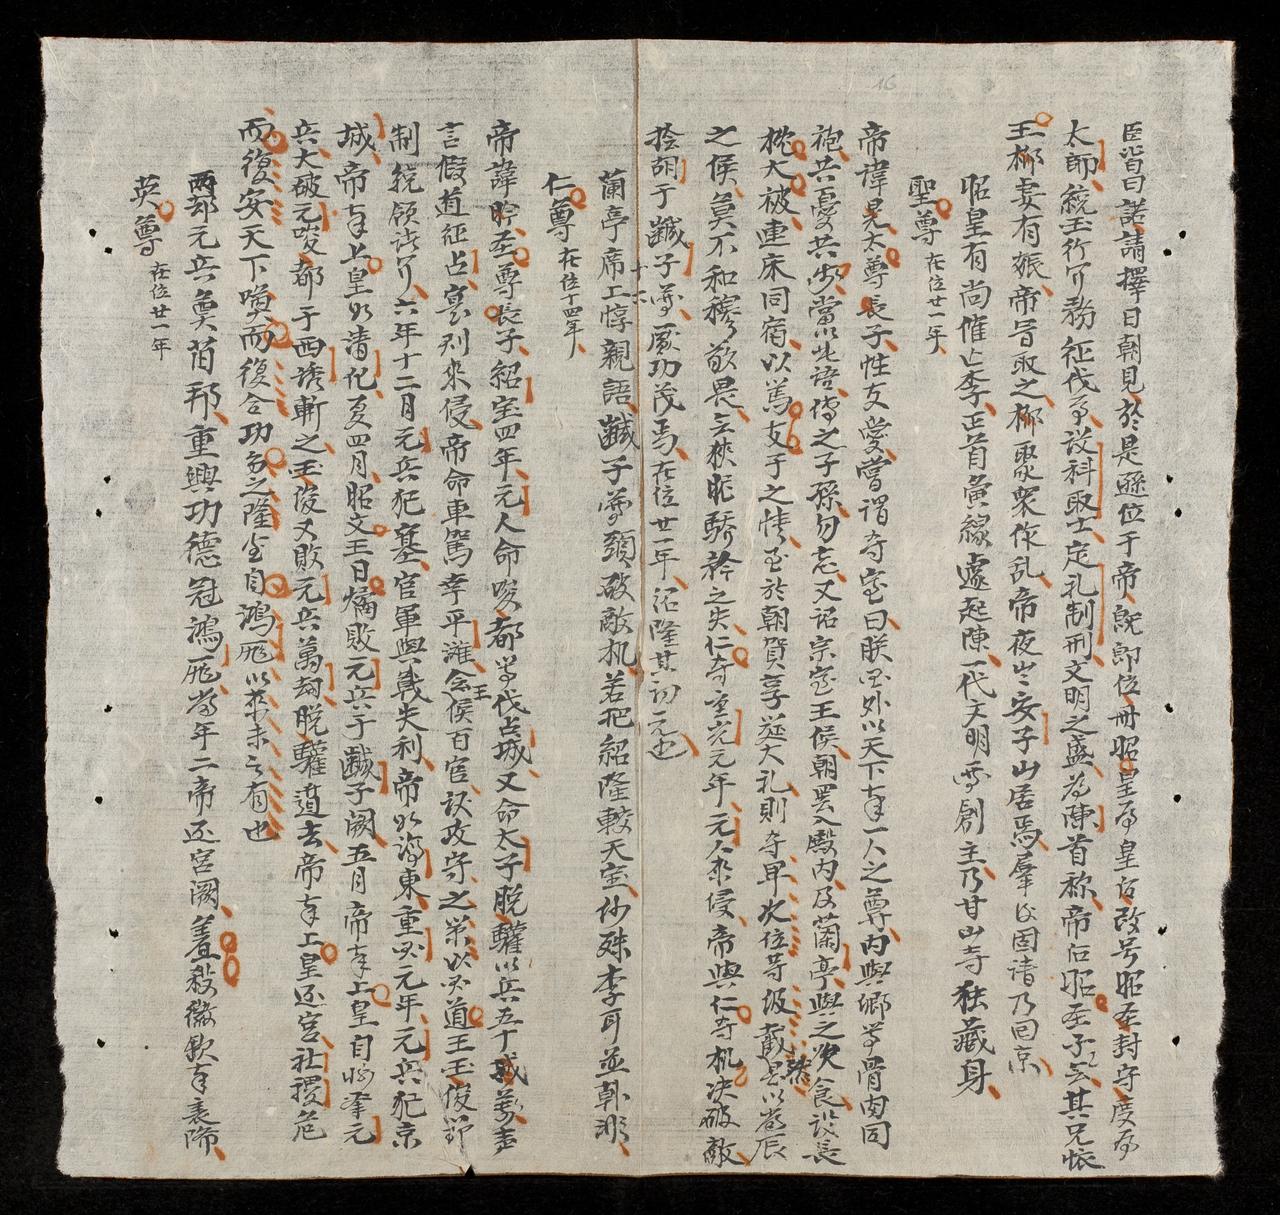 臣皆曰諾請擇日朝見於是遜位于帝既即位冊昭皇為皇后改号昭圣封守度为
太師統玉行軍務征伐为设科取士定礼制刑文明之盛为陳首称帝后昭圣子之其兄懷
王柳妻有娠帝旨取之柳聚衆作乱帝夜出安子山居焉羣臣固请乃回京
昭皇有尚催亡李正首夤緣遽起陳一代文明雩創主乃甘山寺独藏身
聖尊在位廿一年
帝諱晃太尊長子性友愛嘗谓夺室曰朕家外以天下奉一人之尊内與卿等骨肉同
袍共憂共当以此语傳之子孫勿忘又诏宗室王侯朝罢入殿内及蘭亭與之飲食設長
枕大被連床同宿以篤友于之情至於朝賀享筵大礼則夺卑次位等级截然以当辰
之侯莫不和穆敬畏亡狹昵驕矜之失仁夺重兴元年元人來侵帝與仁夺机决破敵
擒胡于鹹子等厥功茂焉在位廿一年紹隆其初元也
蘭亭席上惇親語鹹子等頭破敵机若把紹隆較天宝仂殊李耳並韓非
仁尊在位十四年
帝諱昑圣尊長子紹宝四年元人命唆都等伐占城又命太子脫驩以兵五十萬声
言假道征占寔則來侵帝命車駕幸平滩会王侯百官议攻守之策以兴道王玉俊节
制统领诸军六年十二月元兵犯塞官軍與戰失利帝如海東重兴元年元兵犯京
城帝奉上皇如清化夏四月昭文王日燏敗元兵于鹹子闕五月帝奉上皇自將擊元
兵大破元唆都于西诱斬之玉俊又敗元兵萬劫脫驩遁去帝奉上皇还宮社稷危
而復安天下喚而復合功多之隆全自鴻厖以來未之有也
兩却元兵奠莒邦重興功德冠鴻厖当年二帝还宮闕羞殺徽欽奉表降
英尊在位廿一年